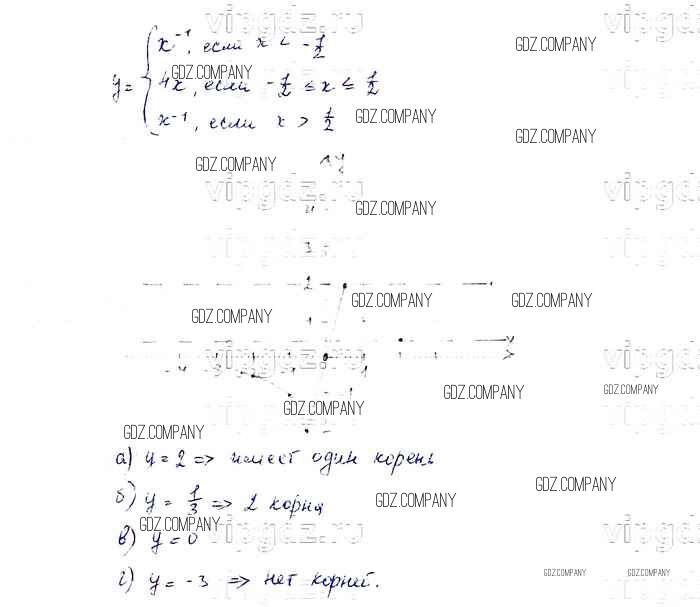 vipgdz.ru
x⁻¹, если x < -1/2
GDZ.COMPANY
y = { 4x, если -1/2 ≤ x ≤ 1/2
GDZ.COMPANY
x⁻¹, если x > 1/2
GDZ.COMPANY
GDZ.COMPANY
GDZ.COMPANY
y
vipgdz.ru
vipgdz.ru
GDZ.COMPANY
3
2
GDZ.COMPANY
GDZ.COMPANY
GDZ.COMPANY
1
x
vipgdz.ru
vipgdz.ru
GDZ.COMPANY
GDZ.COMPANY
GDZ.COMPANY
GDZ.COMPANY
а) y = 2 => имеет один корень
GDZ.COMPANY
б) y = 1/3 => 2 корня
GDZ.COMPANY
GDZ.COMPANY
в) y = 0
vipgdz.ru
vipgdz.ru
г) y = -3 => нет корней.
GDZ.COMPANY
GDZ.COMPANY